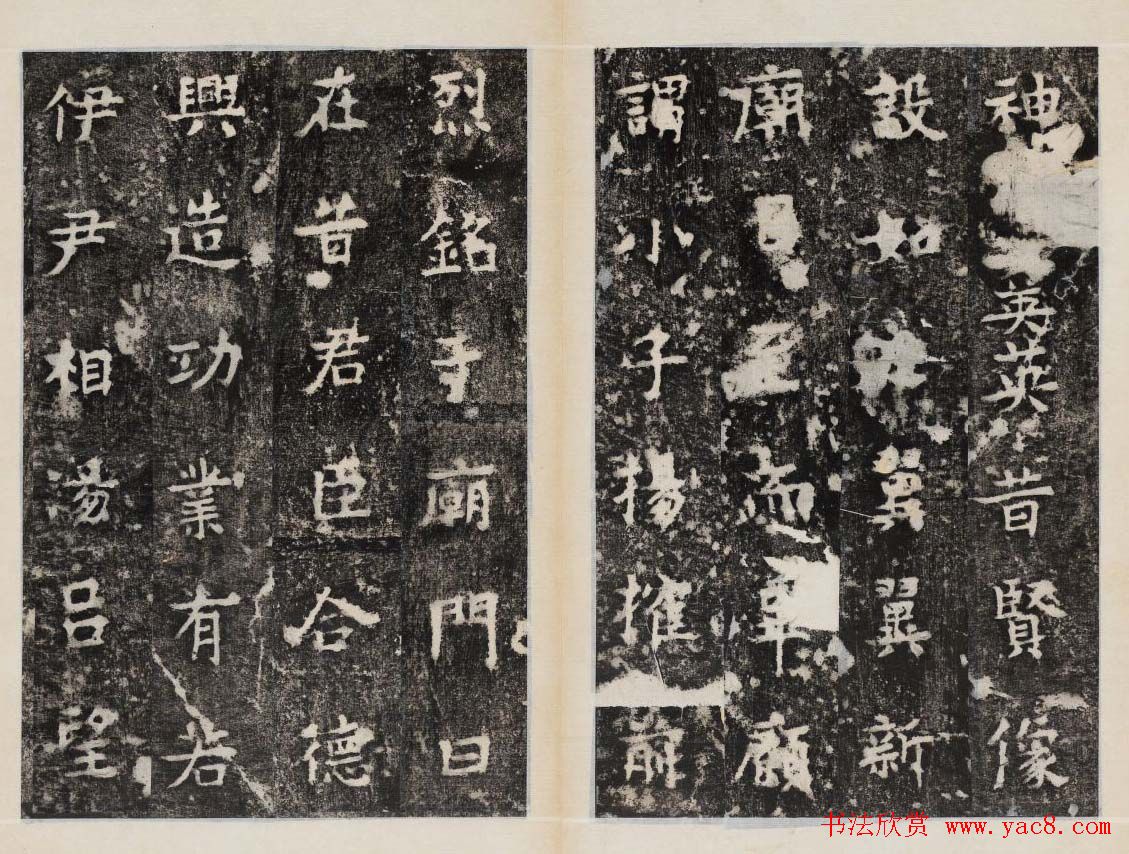 神英英昔賢像
設如翼翼新
廟而畢顧
謂小子揚搉前
烈銘寺廟門曰
在昔君臣合德
興造功業有若
伊尹相湯呂望
书法欣赏 www.yac8.com